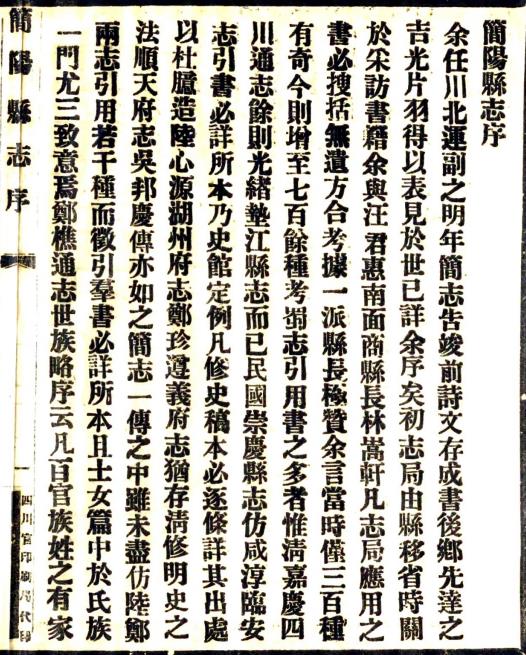 簡陽縣志序
余任川北運副之明年簡志告竣前詩文存成書後鄉先達之
吉光片羽得以表見於世已詳余序矣初志局由縣移省時關
於采訪書籍余與汪君惠南面商縣長林嵩軒凡志局應用之
書必搜括無遺方合考據一派縣長極贊余言當時僅三百種
有奇今則增至七百餘種考蜀志引用書之多者惟淸嘉慶四
川通志餘則光緒墊江縣志而已民國崇慶縣志仿咸淳臨安
志引書必詳所本乃史館定例凡修史稿本必逐條詳其出處
以杜臆造陸心源湖州府志鄭珍遵義府志猶存淸修明史之
法順天府志吳邦慶傳亦如之簡志一傳之中雖未盡仿陸鄭
兩志引用若干種而徵引羣書必詳所本且士女篇中於氏族
一門尤三致意焉鄭樵通志世族略序云凡百官族姓之有家
簡陽縣志序
一
四川官印刷局代印